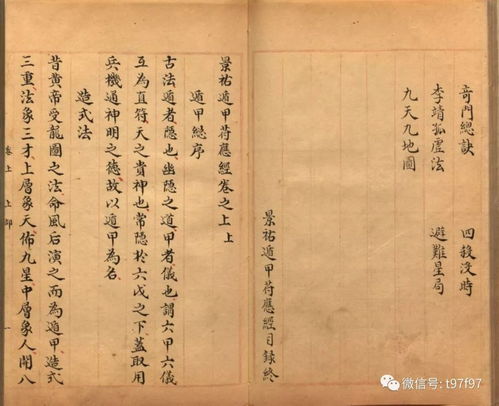 奇門總訣　四殺沒時
李靖孤虛法　避難星局
九天九地圖
景祐遁甲符應經目錄終
景祐遁甲符應經卷之上上
遁甲總序
古法遁者隱也幽隱之道甲者儀也謂六甲六儀
互為直符天之貴神也常隱於六戊之下蓋取用
兵機通神明之德故以遁甲為名
造式法
昔黃帝受龍圖之法命風后演之而為遁甲造式
三重法象三才上層象天佈九星中層象人開八
卷上 上
一
微信号: t97f97